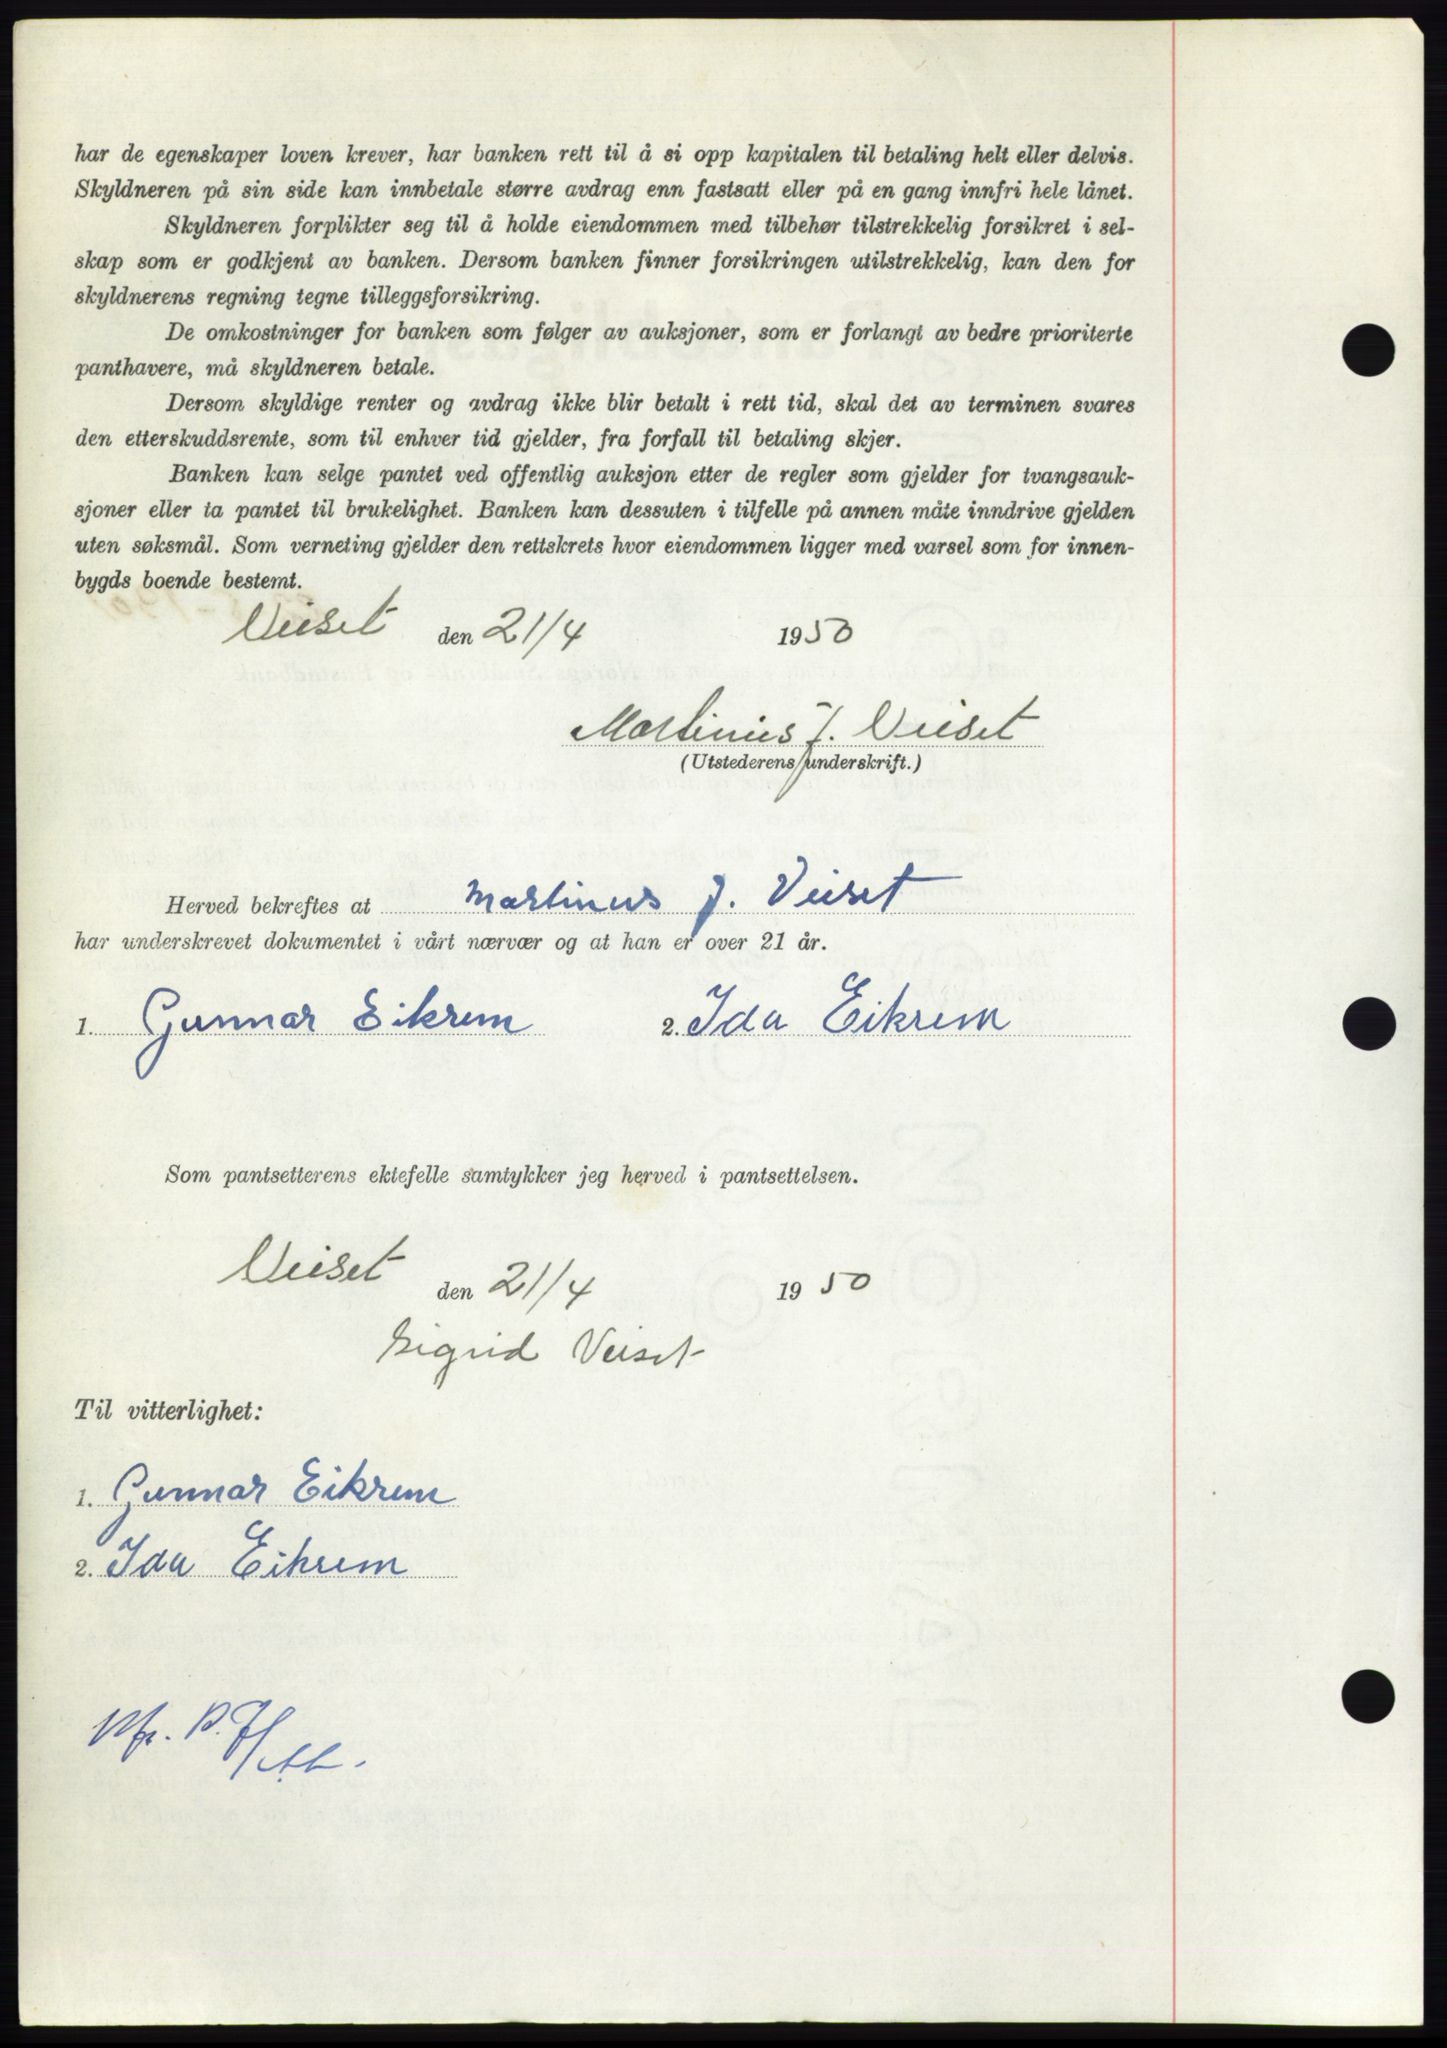 har de egenskaper loven krever, har banken rett til å si opp kapitalen til betaling helt eller delvis.
Skyldneren på sin side kan innbetale større avdrag enn fastsatt eller på en gang innfri hele lånet.
Skyldneren forplikter seg til å holde eiendommen med tilbehør tilstrekkelig forsikret i sel-
skap som er godkjent av banken. Dersom banken finner forsikringen utilstrekkelig, kan den for
skyldnerens regning tegne tilleggsforsikring.
De omkostninger for banken som følger av auksjoner, som er forlangt av bedre prioriterte
panthavere, må skyldneren betale.
Dersom skyldige renter og avdrag ikke blir betalt i rett tid, skal det av terminen svares
den etterskuddsrente, som til enhver tid gjelder, fra forfall til betaling skjer.
Banken kan selge pantet ved offentlig auksjon etter de regler som gjelder for tvangsauk-
sjoner eller ta pantet til brukelighet. Banken kan dessuten i tilfelle på annen måte inndrive gjelden
uten søksmål. Som verneting gjelder den rettskrets hvor eiendommen ligger med varsel som for innen-
bygds boende bestemt.
Veiset den 21/4 1950
Martinus J. Veiset
(Utstederens underskrift.)
Herved bekreftes at Martinus J. Veiset
har underskrevet dokumentet i vårt nærvær og at han er over 21 år.
1. Gunnar Eikrem 2. Ida Eikrem
Som pantsetterens ektefelle samtykker jeg herved i pantsettelsen.
Veiset den 21/4 1950
Sigrid Veiset
Til vitterlighet:
1. Gunnar Eikrem
2. Ida Eikrem